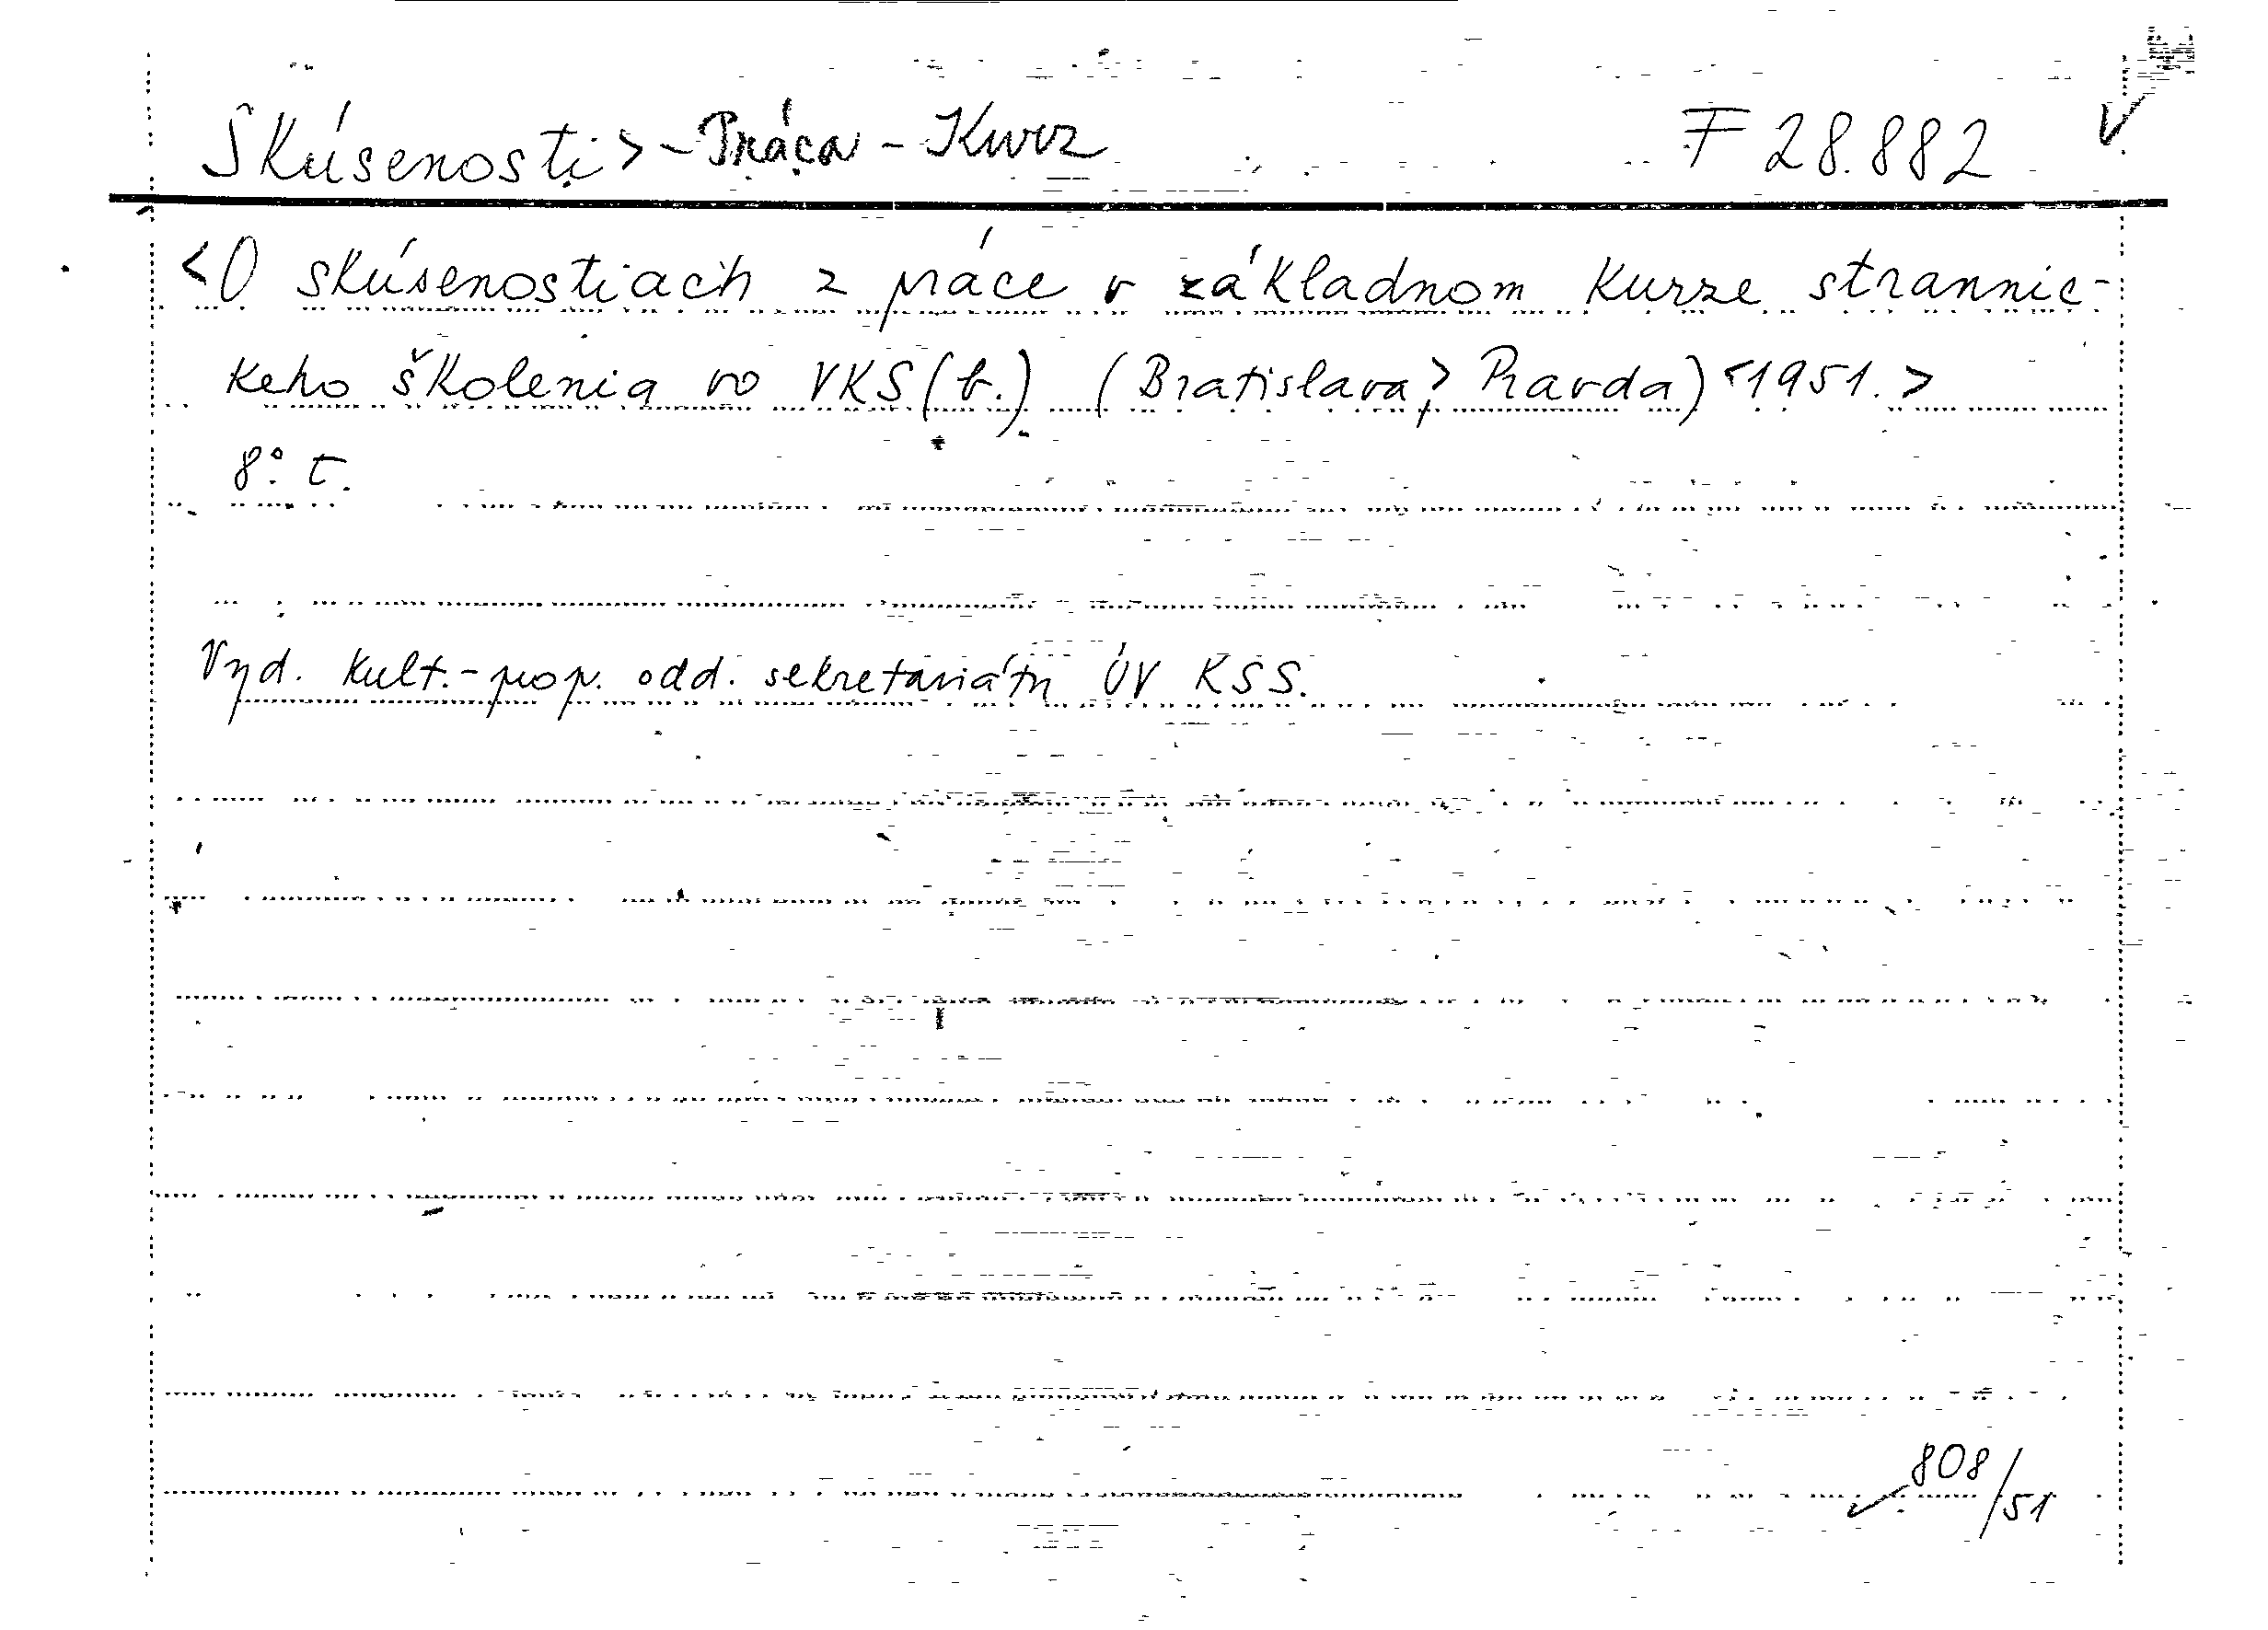 Skúsenosti > - Práca - Kurz F 28.882 V
<O skúsenostiach z práce v základnom kurze strannic-
keho školenia vo VKS(b.) (Bratislava,> Pravda) <1951.>
8° t.
Vyd. kult.-prop. odd. sekretariátu ÚV KSS.
808/51